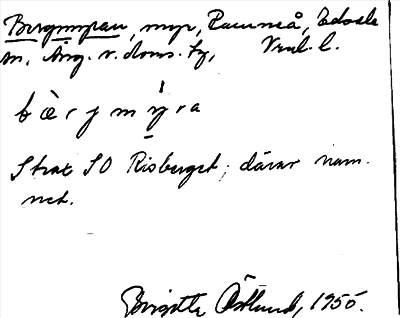 Bergmyran, myr, Ramneå, Edsele
sn, Ång. v. doms. fg, Vnl. l.
bærjmýra
Strax SO Risberget; därav nam-
net.
Birgitta Östlund, 1950.